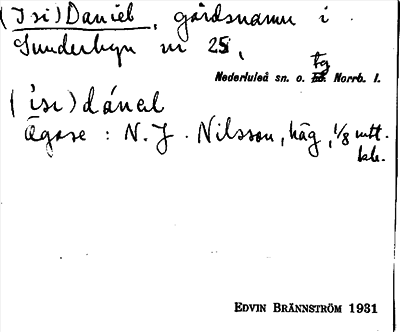 (Isi)Daniel, gårdsnamn i
Sunderbyn nr 25,
Nederluleå sn. o. tg Norrb. l.
(isi)dánɛl
Ägare : N. J. Nilsson, häg, 1/8 mtl.
EDVIN BRÄNNSTRÖM 1931